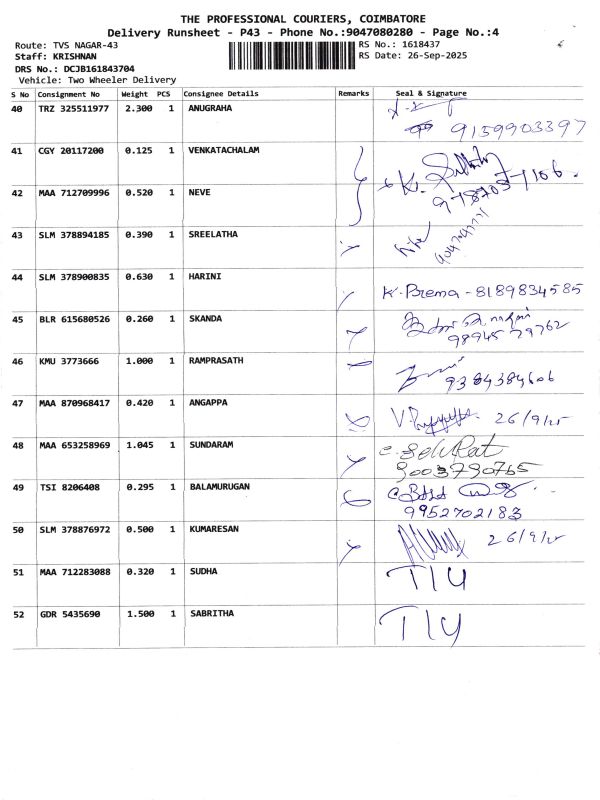 THE PROFESSIONAL COURIERS, COIMBATORE
Delivery Runsheet - P43 - Phone No.:9047080280 - Page No.:4
Route: TVS NAGAR-43
RS No.: 1618437
Staff: KRISHNAN
RS Date: 26-Sep-2025
DRS No.: DCJB161843704
Vehicle: Two Wheeler Delivery
S No Consignment No Weight PCS Consignee Details Remarks Seal & Signature
40 TRZ 325511977 2.300 1 ANUGRAHA
9159903397
41 CGY 20117200 0.125 1 VENKATACHALAM
42 MAA 712709996 0.520 1 NEVE
43 SLM 378894185 0.390 1 SREELATHA
44 SLM 378900835 0.630 1 HARINI
K. Prema - 8189834585
45 BLR 615680526 0.260 1 SKANDA
98945 79762
46 KMU 3773666 1.000 1 RAMPRASATH
9384384606
47 MAA 870968417 0.420 1 ANGAPPA
26/9/25
48 MAA 653258969 1.045 1 SUNDARAM
9003790765
49 TSI 8206408 0.295 1 BALAMURUGAN
9952702183
50 SLM 378876972 0.500 1 KUMARESAN
26/9/25
51 MAA 712283088 0.320 1 SUDHA
T14
52 GDR 5435690 1.500 1 SABRITHA
T14